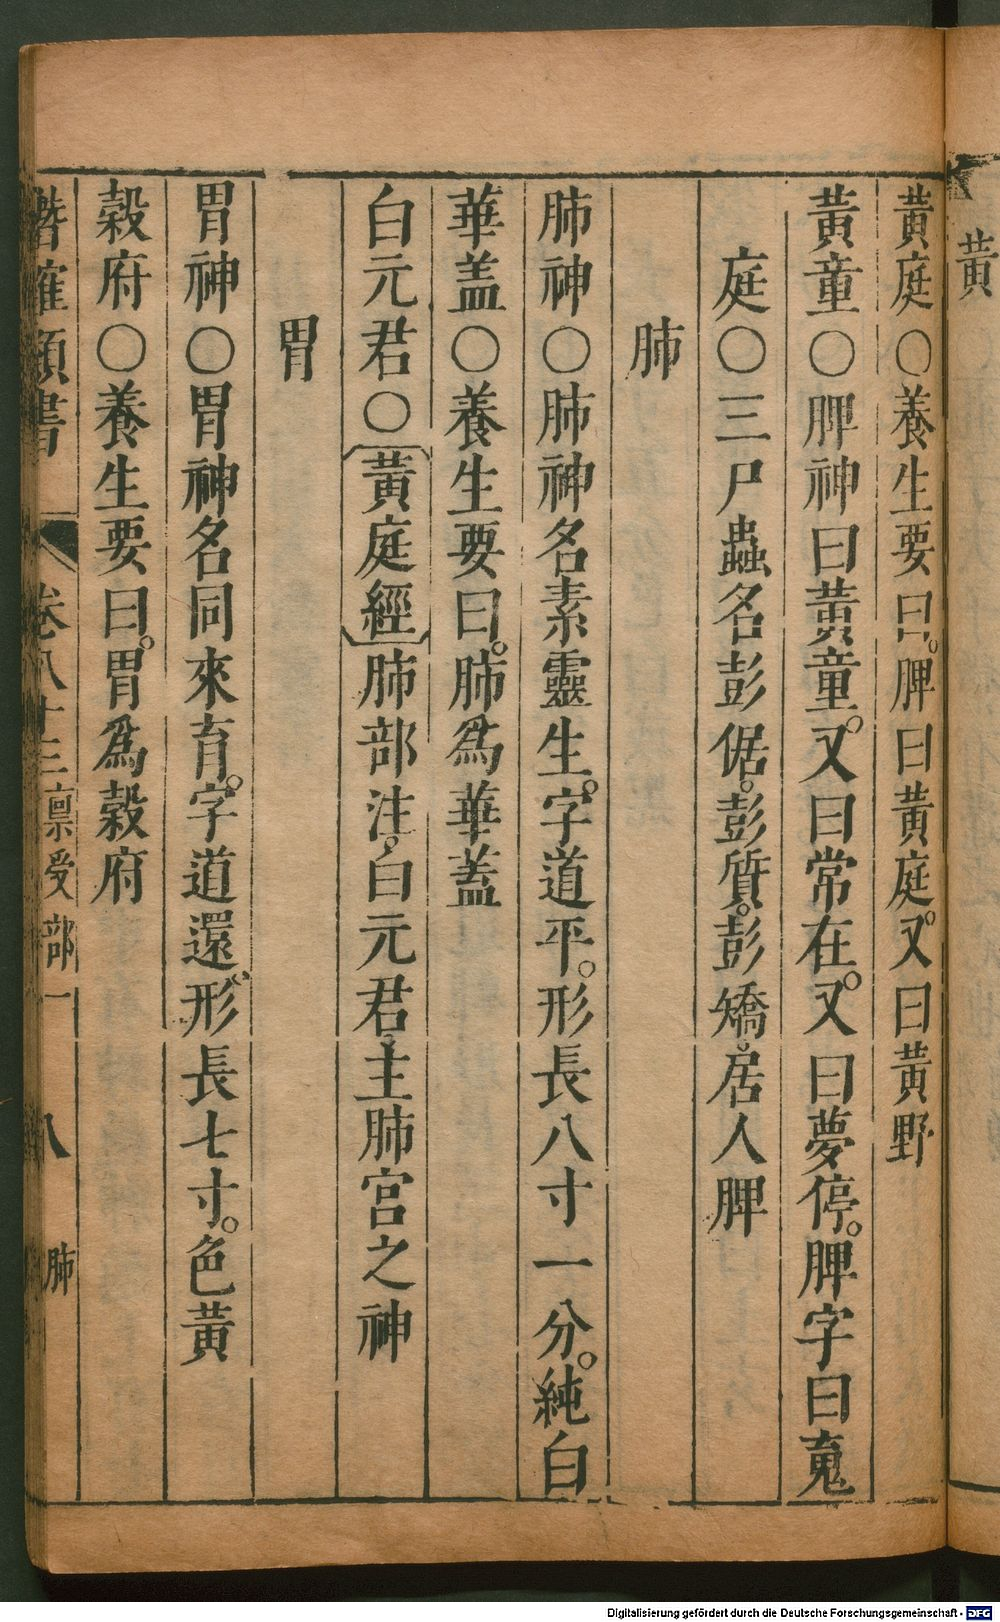 黃
黃庭○養生要曰。脾曰黃庭。又曰黃野
黃童○脾神曰黃童。又曰常在。又曰夢停。脾字曰䰟
庭○三尸蟲名彭倨。彭質。彭矯。居人脾
肺
肺神○肺神名素靈生。字道平。形長八寸一分。純白
華盖○養生要曰。肺為華蓋
白元君○〔黃庭經〕肺部注。白元君。主肺宮之神
胃
胃神○胃神名同來育。字道還。形長七寸。色黃
穀府○養生要曰。胃為穀府
潛確類書 卷八十三 稟受部一 八 肺
Digitalisierung gefördert durch die Deutsche Forschungsgemeinschaft - DFG